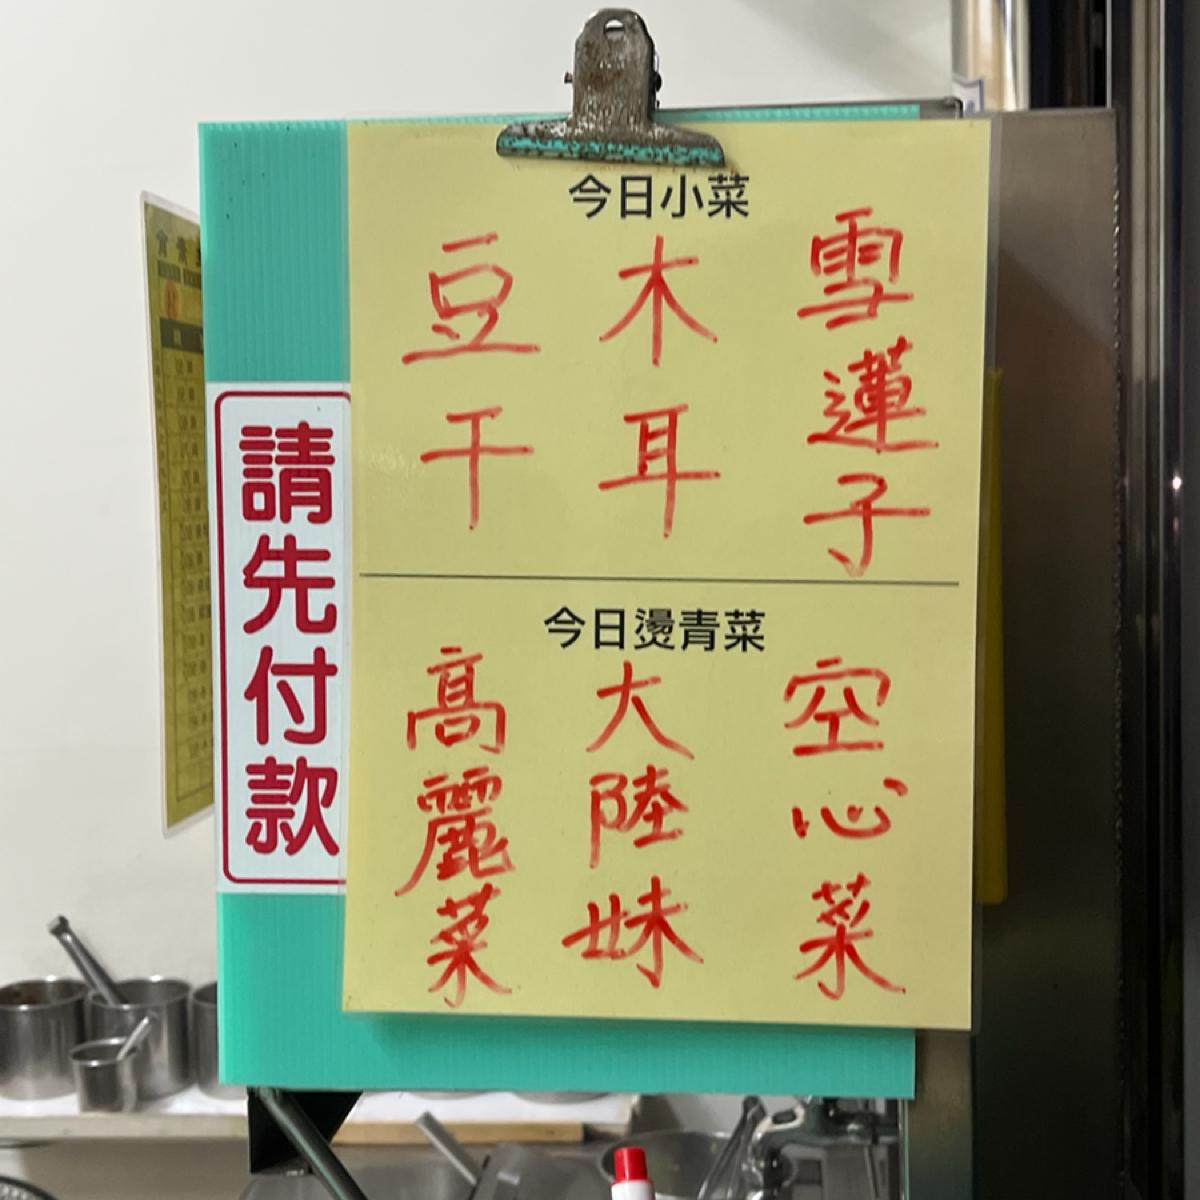 今日小菜
雪蓮子
木耳
豆干
今日燙青菜
空心菜
大陸妹
高麗菜
請先付款